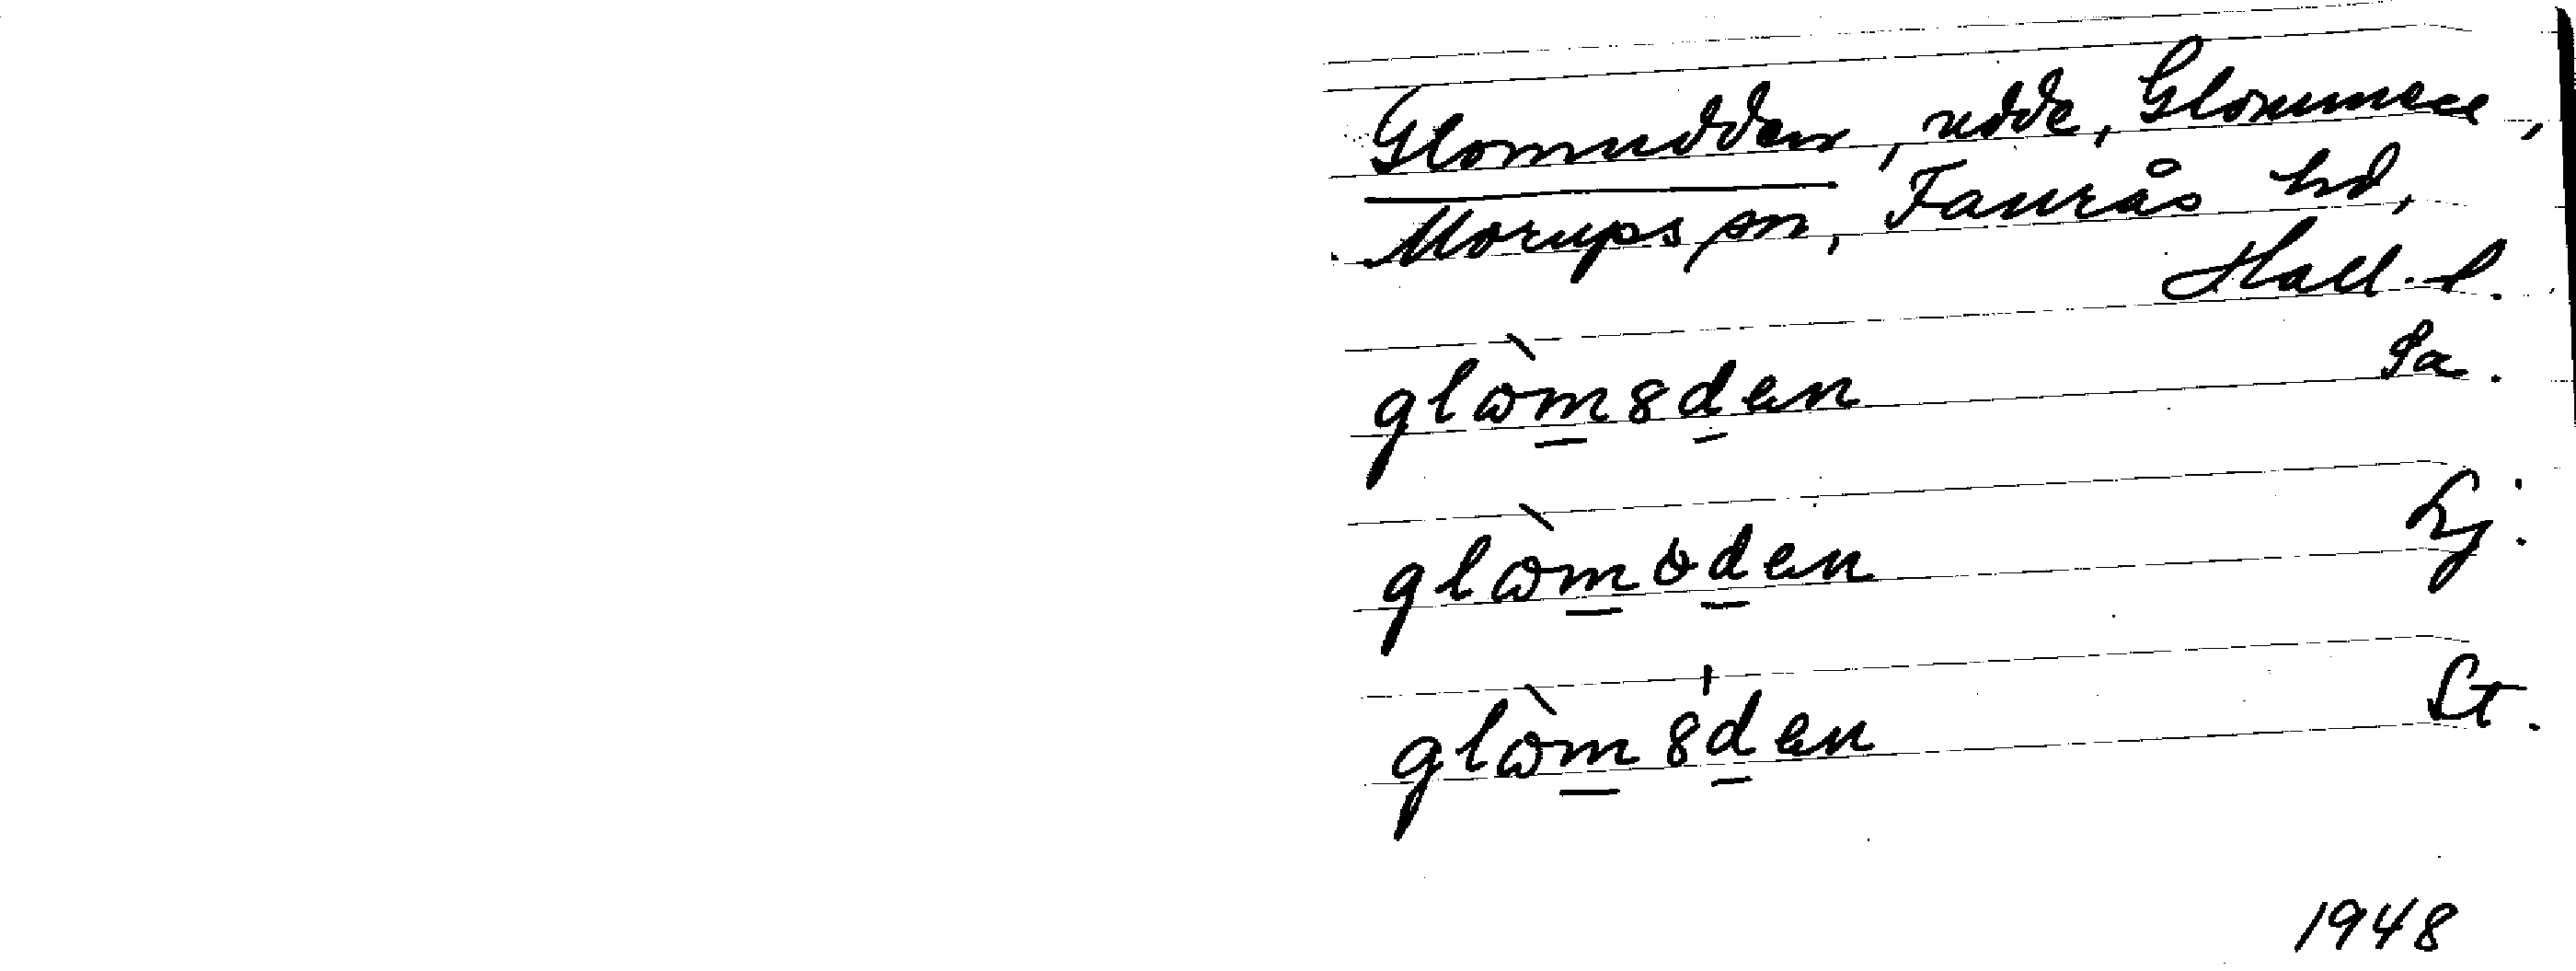 Glomudden, udde, Glommen,
Morups sn, Faurås hd,
Hall. l.
glὼm8den Sa.
glὼmꝋden Lj.
glὼm8̍den St.
1948